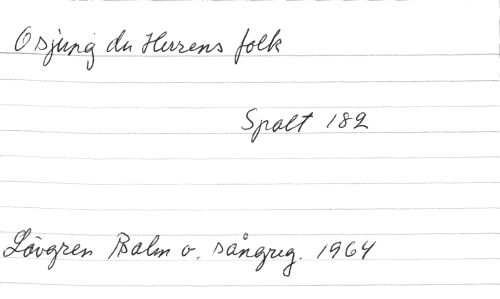 O sjung du Herrens folk
Spalt 182
Lövgren Psalm o. sångreg. 1964